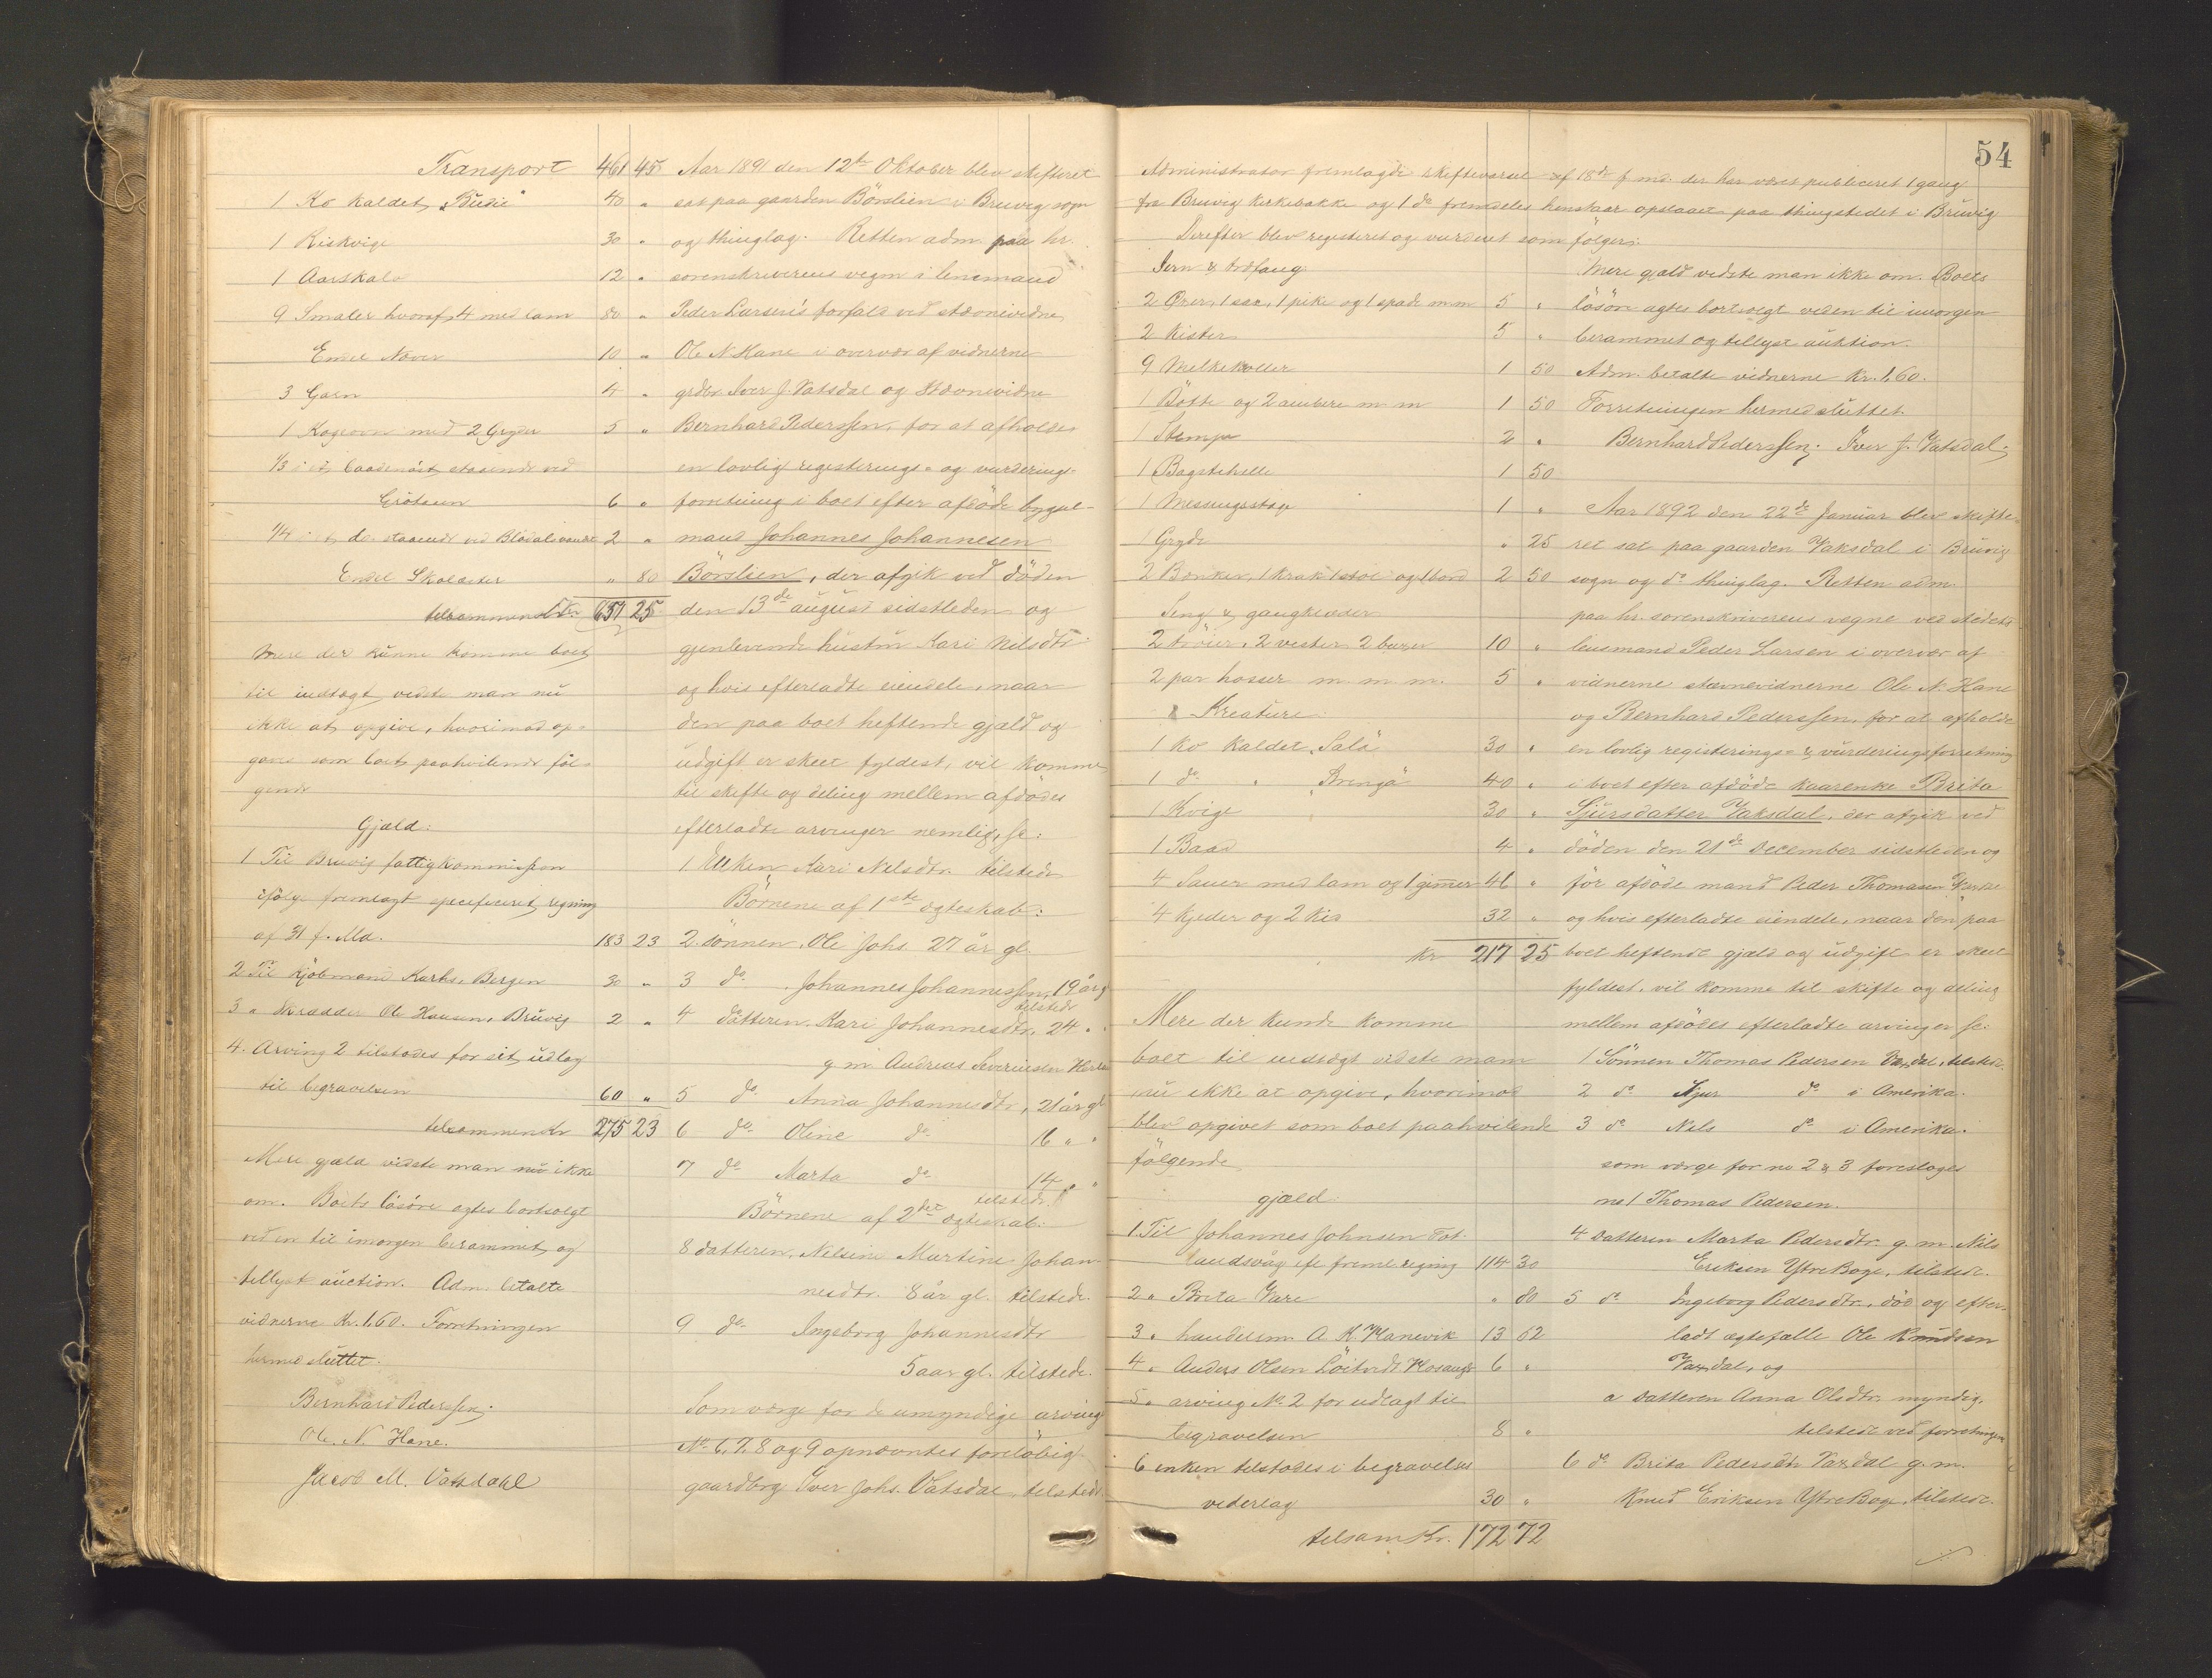 Transport 461 45
1 Ko kaldet "Budei" 40 "
1 Kiskvige 30 "
1 Aarskalv 12 "
9 Smaler hvoraf 4 med lam 80 "
Endel Næver 10 "
3 Garn 4 "
1 Kogeovn med 2 Gryder 5 "
1/3 i et baadenøst staaende ved
6 "
1/4 i et do. staaende ved Blødalsvandet 2 "
Endel Skolæter " 80
tilsammen Kr. 651 25
Mere der kunne komme boet
til indtægt vidste man nu
ikke at opgive, hvorimod op-
gaves som boets paahvilende føl-
gende
Gjæld:
1 Til Bruvig fattigkommission
ifølge fremlagt specificeret regning
af 31 f. Md. 183 23
2 Til Kjøbmand Bergen 30 "
3 " Skrædder Ole Hansen, Bruvig 2 "
4. Arving 2 tilstodes for sit udlæg
til begravelsen 60 "
tilsammen Kr 275 23
Mere gjæld vidste man nu ikke
om. Boets løsøre agtes bortsolgt
ved en til imorgen berammet og
tillyst auction. Adm. betalte
vidnerne Kr. 1,60. Forretningen
hermed sluttet.
Bernhard Pederssen.
Ole. N. Hane.
Jacob M. Vatsdahl
Aar 1891 den 12te Oktober blev skifteret
sat paa gaarden Börslien i Bruvig sogn
og thinglag. Retten adm. paa hr.
sorenskriverens vegne i lensmand
Peder Larsens forfald ved stævnevidne
Ole N Hane i overvær af vidnerne
grdbr. Iver J. Vatsdal og Stævnevidne
Bernhard Pederssen, for at afholde
en lovlig registerings- og vurderings-
forretning i boet efter afdøde bygsel-
mand Johannes Johannesen
Börslien, der afgik ved döden
den 13de august sidstleden og
gjenlevende hustru Kari Nilsdtr
og hvis efterladte eiendele, naar
den paa boet heftende gjæld og
udgift er skeet fyldest, vil komme
til skifte og deling mellem afdødes
efterladte arvinger nemlig, se:
1 Enken Kari Nilsdtr. tilstede
Börnene af 1ste ægteskab:
2. sönnen, Ole Johs. 27 år gl.
3 do. Johannes Johannessen, 19 år gl
tilstede
4 datteren. Kari Johannesdtr, 24 " "
g m. Andreas Severinsen
5 do. Anna Johannesdtr, 21 år gl
6 do. Oline do. 16 " "
7 do. Marta do. 14 " "
tilstede
Börnene af 2det ægteskab:
8 datteren, Nilsine Martine Johan-
nesdtr. 8 år gl. tilstede.
9 do. Ingeborg Johannesdtr
5 aar gl. tilstede.
Som værge for de umyndige arving
No. 6, 7, 8 og 9 opnævntes foreløbig
gaardbrg Iver Johs. Vatsdal, tilstede.
54
Administrator fremlagde skiftevarsel af 18de f md. der har været publiceret 1 gang
fra Bruvig kirkebakke og 1 do fremdeles henstaar opslaaet paa thingstedet i Bruvig
Derefter blev registeret og vurderet som fölger:
Jern & træfang
2 Øxer, 1 sax, 1 pike og 1 spade m m 5 "
2 Kister 5 "
9 Melkekoller 1 50
1 Bøtte og 2 ambere m m 1 50
1 Stampe 2 "
1 Bagstehelle 1 50
1 Messingstage 1 "
1 Gryde " 25
2 Bænker, 1 krak 1 stol og 1 bord 2 50
Seng & gangklæder
2 trøier, 2 vester 2 buxer 10 "
2 par hosser m m m. 5 "
Kreature
1 Ko kaldet "Sala" 30 "
1 do. " "Bringa" 40 "
1 Kvige 30 "
1 Baad 4 "
4 Sauer med lam og 1 gimer 46 "
4 Kjeder og 2 Kid 32 "
Kr 217 25
Mere der kunde komme
boet til indtægt vidste man
nu ikke at opgive, hvorimod
blev opgivet som boet paahvilende
følgende
gjæld
1. Til Johannes Johnsen Tot-
landsvåg ifl freml regning 114 30
2 " Brita Vare " 80
3 " handelsm. A K. Hanevik 13 62
4 " Anders Olsen Löitvedt Hosanger 6 "
5 " arving No. 2 for udlagt til
begravelsen 8 "
6 enken tilstodes i begravelses
vederlag 30 "
tilsam Kr. 172 72
Mere gjæld vidste man ikke om. Boets
løsøre agtes bortsolgt ved en til imorgen
berammet og tillyst auktion.
Adm. betalte vidnerne Kr. 1,60.
Forretningen hermed sluttet.
Bernhard Pederssen. Iver J. Vatsdal.
Aar 1892 den 22de Januar blev skifte-
ret sat paa gaarden Vaksdal i Bruvig
sogn og do thinglag. Retten adm.
paa hr. sorenskriverens vegne ved stedets
lensmand Peder Larsen i overvær af
vidnerne stævnevidnerne Ole N. Hane
og Bernhard Pederssen, for at afholde
en lovlig registerings- & vurderingsforretning
i boet efter afdøde kaarenke Brita
Sjursdatter Vaksdal, der afgik ved
döden den 21de December sidstleden og
för afdöde mand Peder Thomasen
og hvis efterladte eiendele, naar den paa
boet heftende gjæld og udgift er skeet
fyldest, vil komme til skifte og deling
mellem afdødes efterladte arvinger se:
1 Sönnen Thomas Pedersen Vaxdal, tilstede.
2 do Sjur do i Amerika.
3 do Nils do i Amerika.
som værge for no 2 & 3 foresloges
no 1 Thomas Pedersen.
4 Datteren Marta Pedersdtr. g. m. Nils
Eriksen Ytre Boge, tilstede.
5 do Ingeborg Pedersdtr., död og efter-
ladt ægtefælle Ole Knudsen
Vaxdal, og
a Datteren Anna Olsdtr. myndig,
tilstede ved forretningen
6 do Brita Pedersdtr Vaxdal g. m.
Knud Eriksen Ytre Boge, tilstede.